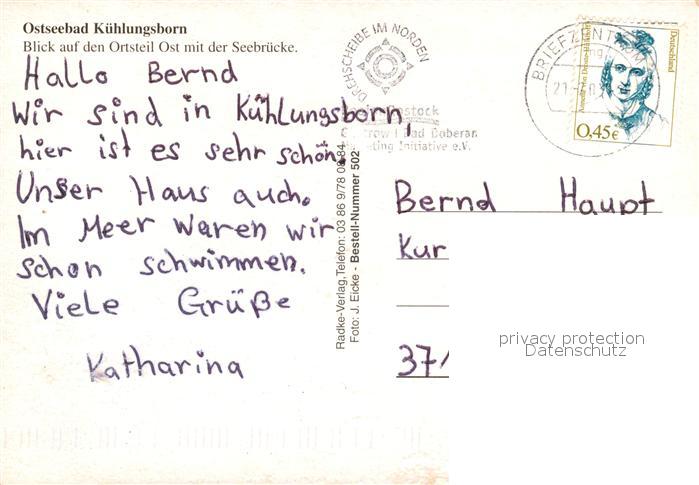 Ostseebad Kühlungsborn
Blick auf den Ortsteil Ost mit der Seebrücke.
Hallo Bernd
Wir sind in Kühlungsborn,
hier ist es sehr schön.
Unser Haus auch.
Im Meer waren wir
schon schwimmen.
Viele Grüße
Katharina
Radke-Verlag, Telefon: 03 86 9/78 08 84
Foto: J. Eicke - Bestell-Nummer 502
DREHSCHEIBE IM NORDEN
Rostock
Bad Doberan
Initiative e.V.
BRIEFZENTRUM
Deutschland
0,45€
Bernd Haupt
Kur
37
privacy protection
Datenschutz